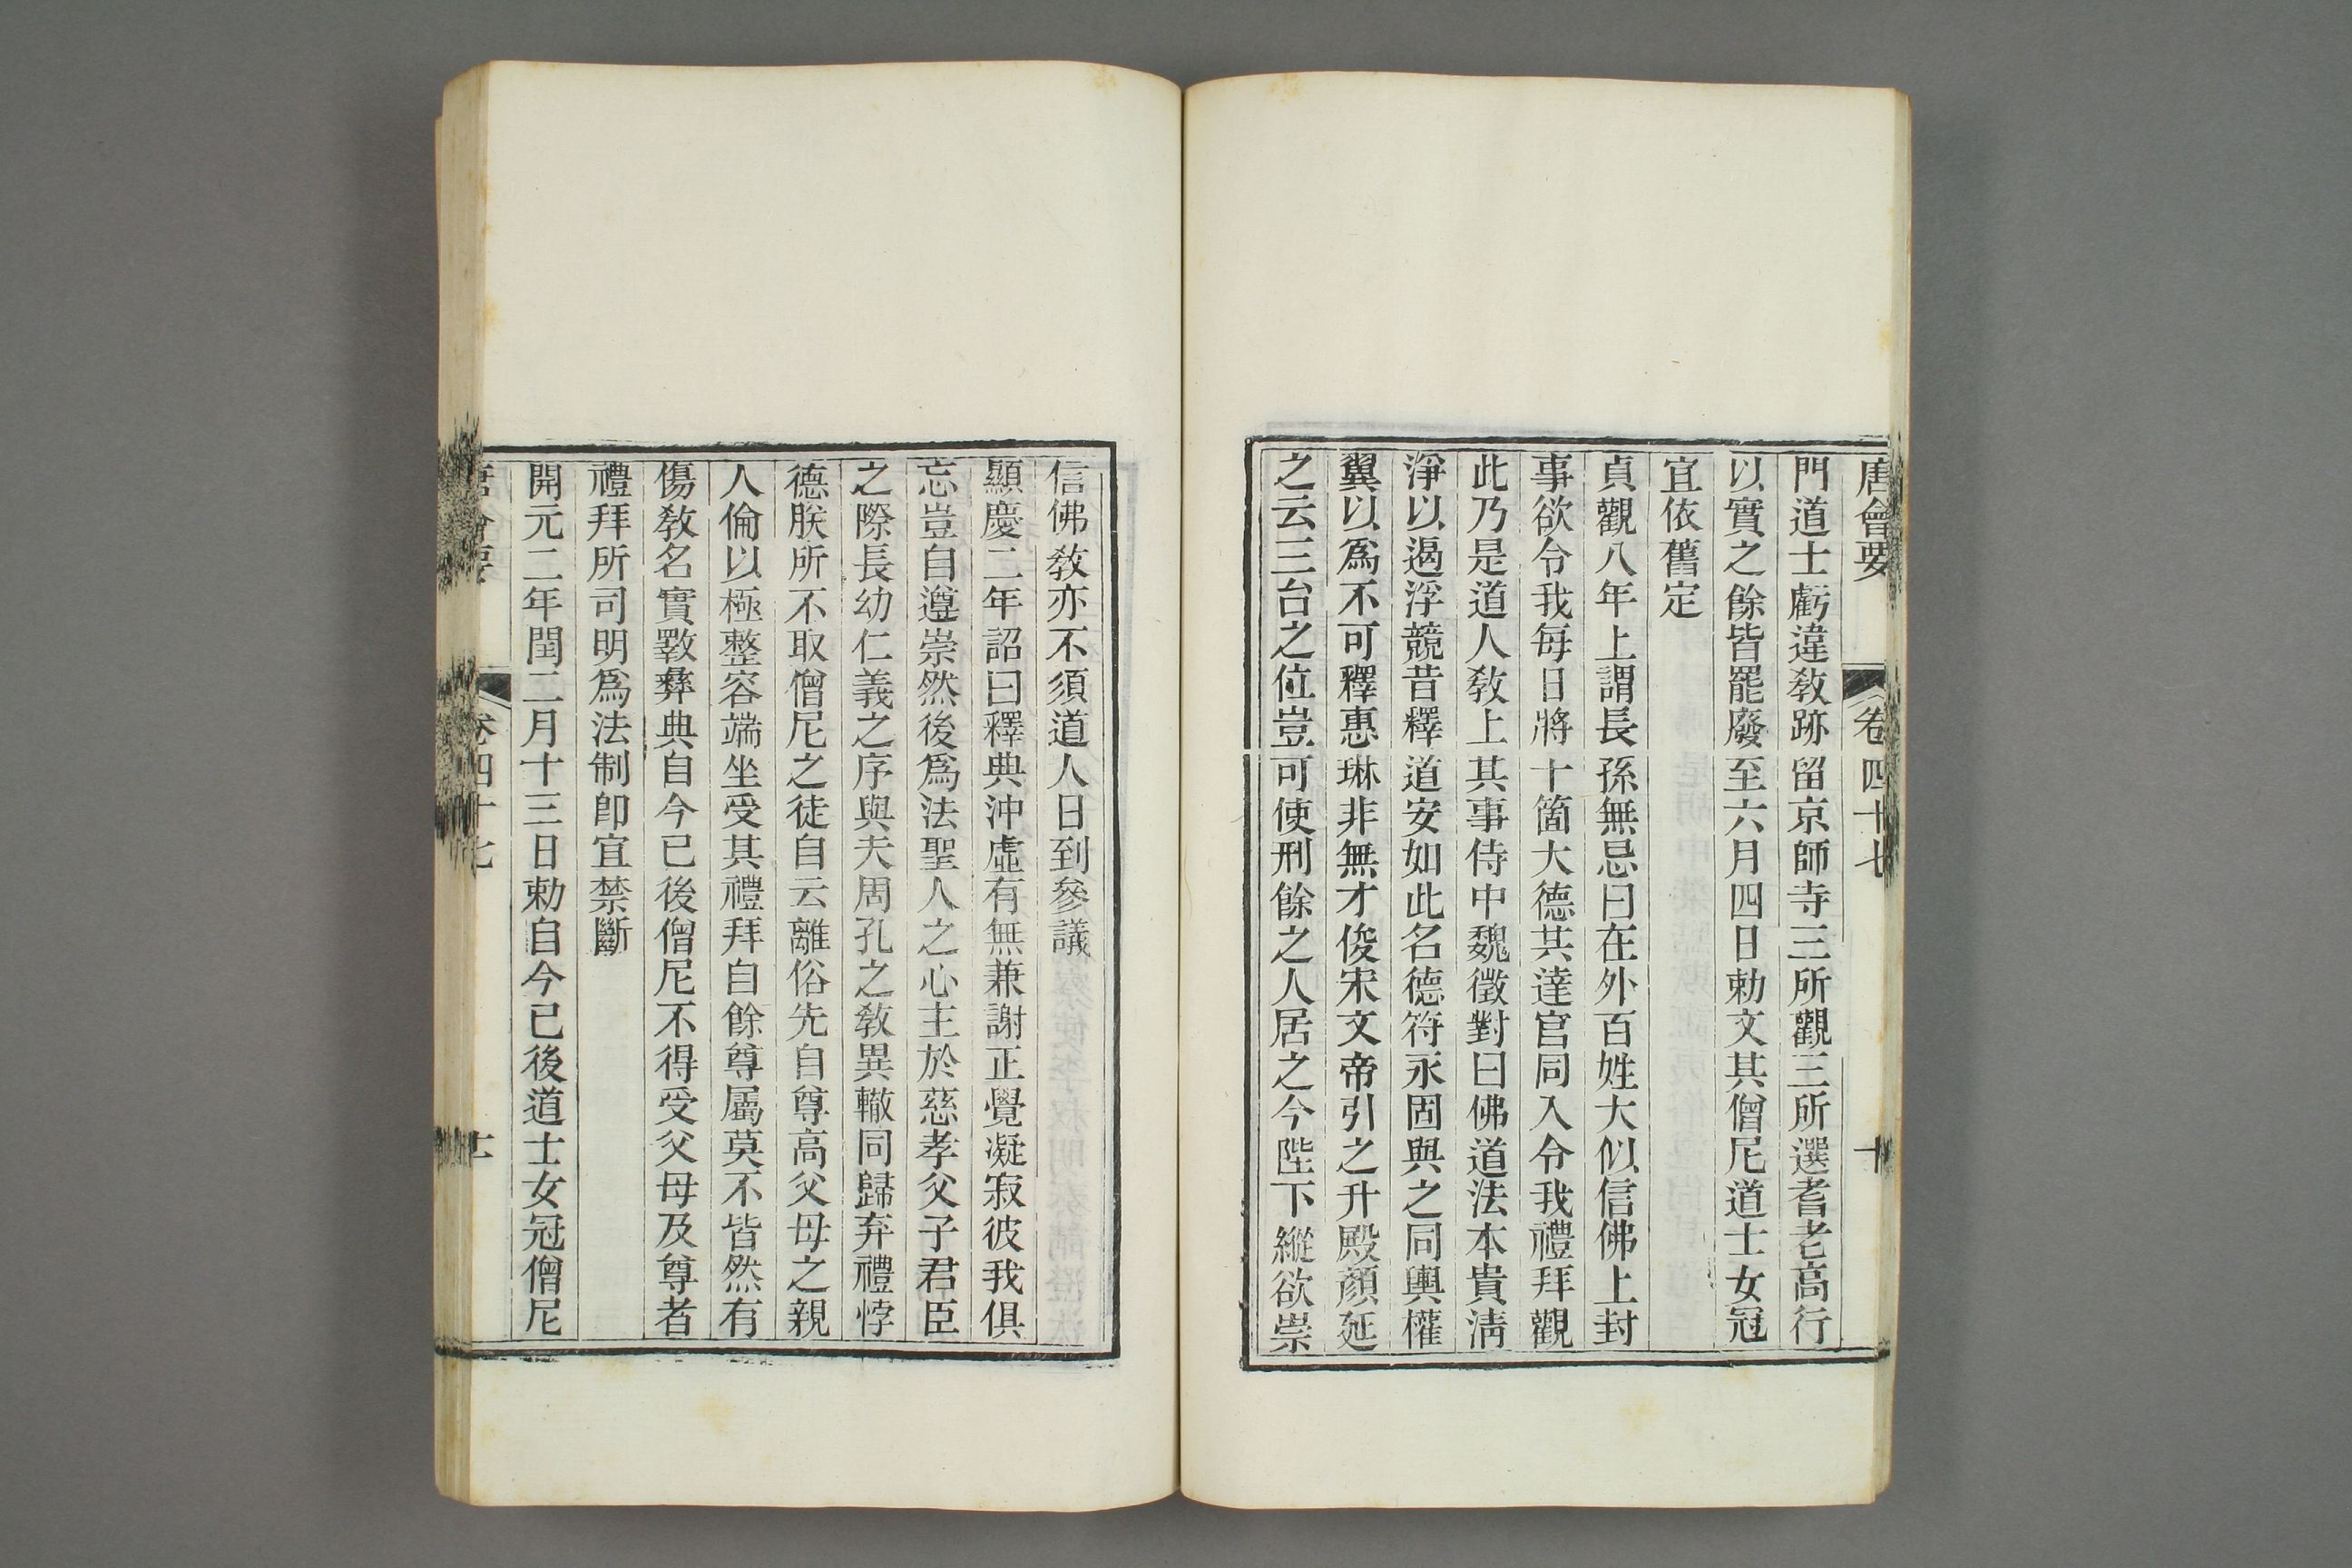 唐會要 卷四十七 十
門道士虧違敎跡留京師寺三所觀三所選耆老高行
以實之餘皆罷廢至六月四日勅文其僧尼道士女冠
宜依舊定
貞觀八年上謂長孫無忌曰在外百姓大似信佛上封
事欲令我每日將十箇大德共達官同入令我禮拜觀
此乃是道人敎上其事侍中魏徵對曰佛道法本貴淸
淨以遏浮競昔釋道安如此名德符永固與之同輿權
翼以爲不可釋惠琳非無才俊宋文帝引之升殿顏延
之云三台之位豈可使刑餘之人居之今陛下縱欲崇
信佛敎亦不須道人日到參議
顯慶二年詔曰釋典沖虛有無兼謝正覺凝寂彼我俱
忘豈自遵崇然後爲法聖人之心主於慈孝父子君臣
之際長幼仁義之序與夫周孔之敎異轍同歸弃禮悖
德朕所不取僧尼之徒自云離俗先自尊高父母之親
人倫以極整容端坐受其禮拜自餘尊屬莫不皆然有
傷敎名實斁彝典自今已後僧尼不得受父母及尊者
禮拜所司明爲法制卽宜禁斷
開元二年閏二月十三日勅自今已後道士女冠僧尼
唐會要 卷四十七 十